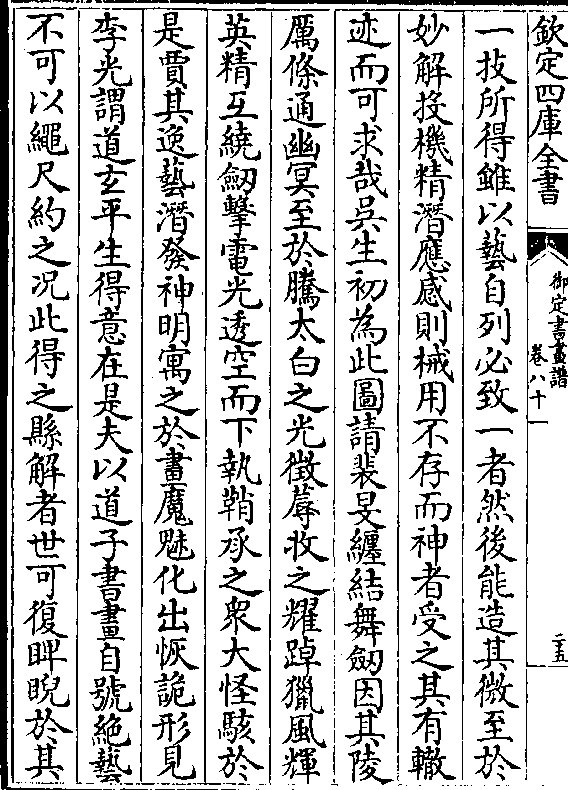 欽定四庫全書
御定書畫譜
卷八十一
二五
一技所得雖以藝自列必致一者然後能造其微至於
妙解投機精潛應感則械用不存而神者受之其有轍
迹而可求哉吳生初為此圖請裴旻纏結舞劒因其陵
厲條通幽冥至於騰太白之光徵蓐收之耀踔獵風輝
英精互繞劒擊電光透空而下執鞘承之衆大怪駭於
是賈其逸藝潛發神明寓之於畫魔魅化出恢詭形見
李光謂道玄平生得意在是夫以道子書畫自號絶藝
不可以繩尺約之况此得之縣解者世可復睥睨於其